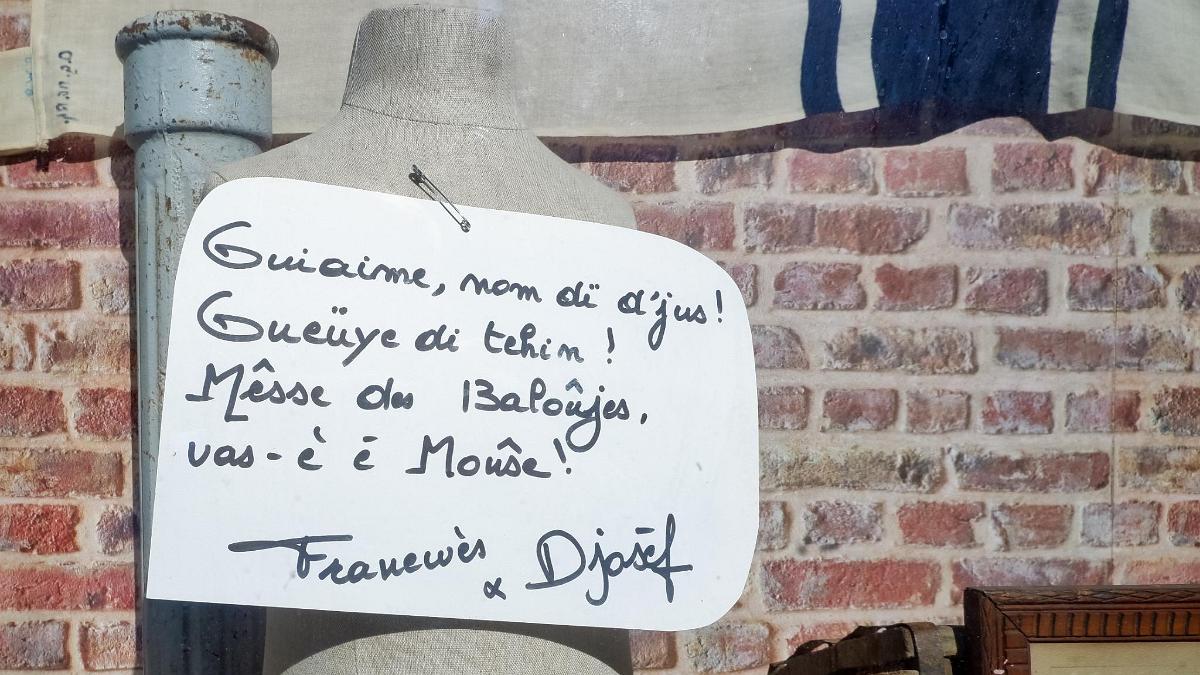 Guiaime, nom dï d'jus!
Gueüye di tchin !
Mêsse des Baloûjes,
vas-è è Moûse!
Francwès
& Djosêf